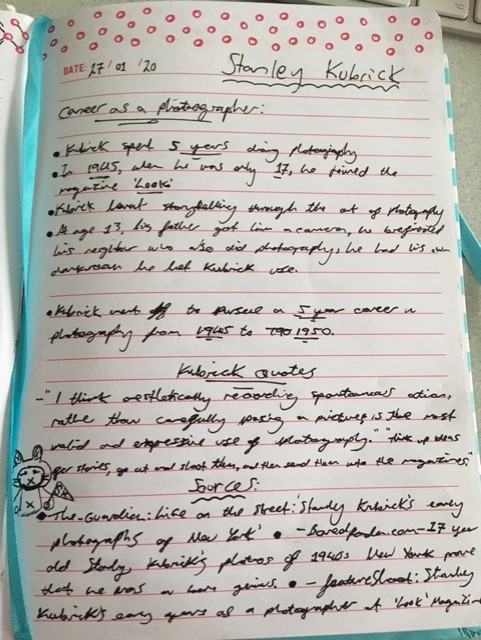 DATE: 27 / 01 / 20
Stanley Kubrick
Career as a photographer:
• Kubrick spent 5 years doing photography
• In 1945, when he was only 17, he joined the
magazine 'Look'
• Kubrick learnt storytelling through the art of photography
• At age 13, his father got him a camera, he befriended
his neighbor who also did photography, he had his own
darkroom he let Kubrick use.
• Kubrick went to pursue a 5 year career in
photography from 1945 to 1950.
Kubrick Quotes
- "I think aesthetically recording spontaneous action,
rather than carefully posing a picture, is the most
valid and expressive use of photography." "Think up ideas
for stories, go out and shoot them, and then send them into the magazines."
Sources:
• The-Guardian: Life on the Street: Stanley Kubrick's early
photographs of New York' • - Boredpanda.com - 17 year
old Stanley Kubrick's photos of 1940s New York prove
that he was a born genius. • - featureshoot: Stanley
Kubrick's early years as a photographer at 'Look' Magazine